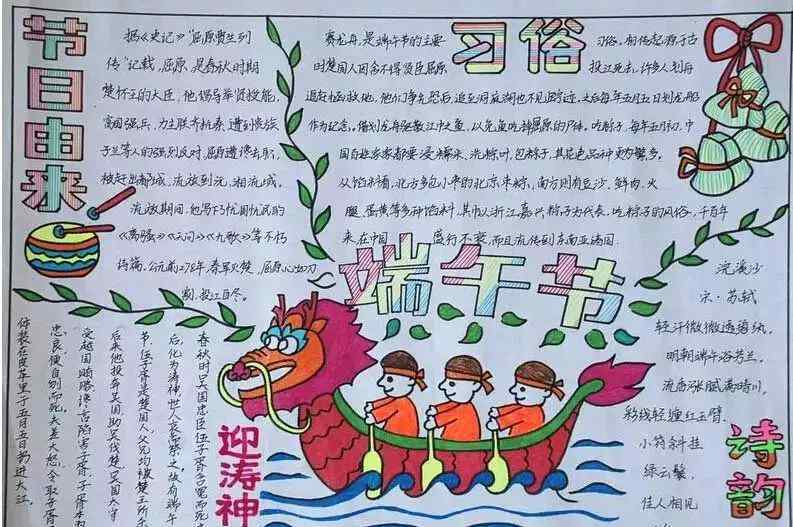 节日由来
据《史记》"屈原贾生列
传"记载,屈原,是春秋时期
楚怀王的大臣,他倡导举贤授能,
富国强兵,力主联齐抗秦,遭到贵族
子兰等人的强烈反对,屈原遭谗去职,
被赶出都城,流放到沅、湘流域。
流放期间,他写下了忧国忧民的
《离骚》《天问》《九歌》等不朽
诗篇,公元前278年,秦军火楚,屈原心如刀
割,投江自尽。
习俗
赛龙舟,是端午节的主要
习俗,相传起源于古
时楚国人因舍不得贤臣屈原
投江死去,许多人划舟
追赶拯救他,他们争先恐后,追至洞庭湖也不见踪迹,之后每年五月五日划龙船
作为纪念。借划龙舟驱散江中之鱼,以免鱼吃掉屈原的尸体。吃粽子,每年五月初,中
国百姓家家都要浸糯米、洗粽叶、包粽子,其花色品种更为繁多。
从馅料看,北方多包小枣的北京枣粽,南方则有豆沙、鲜肉、火
腿、蛋黄等多种馅料,其中以浙江嘉兴粽子为代表,吃粽子的风俗,千百年
来在中国
盛行不衰,而且流传到东南亚诸国
端午节
迎涛神
春秋时吴国忠臣伍子胥含冤而死
后,化为涛神,世人哀而祭之,故有端午
节,伍子胥是楚国人,父兄均被楚王所杀
后来他投奔吴国,助吴伐楚,吴国太宰
受越国贿赂,谗言陷害子胥,子胥本
忠良,便自刎而死,夫差大怒,令取子胥
体装在皮革里于五月五日扔进大江,
诗韵
浣溪沙
宋·苏轼
轻汗微微透碧纨,
明朝端午浴芳兰。
流香涨腻满晴川,
彩线轻缠红玉臂,
小符斜挂
绿云鬟,
佳人相见